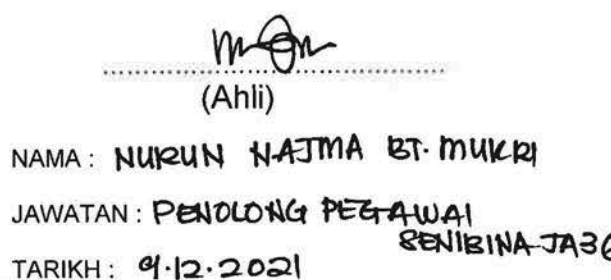 (Ahli)
NAMA : NURUN NAJMA BT. MUKRI
JAWATAN : PENOLONG PEGAWAI
SENIBINA JA36
TARIKH : 9.12.2021